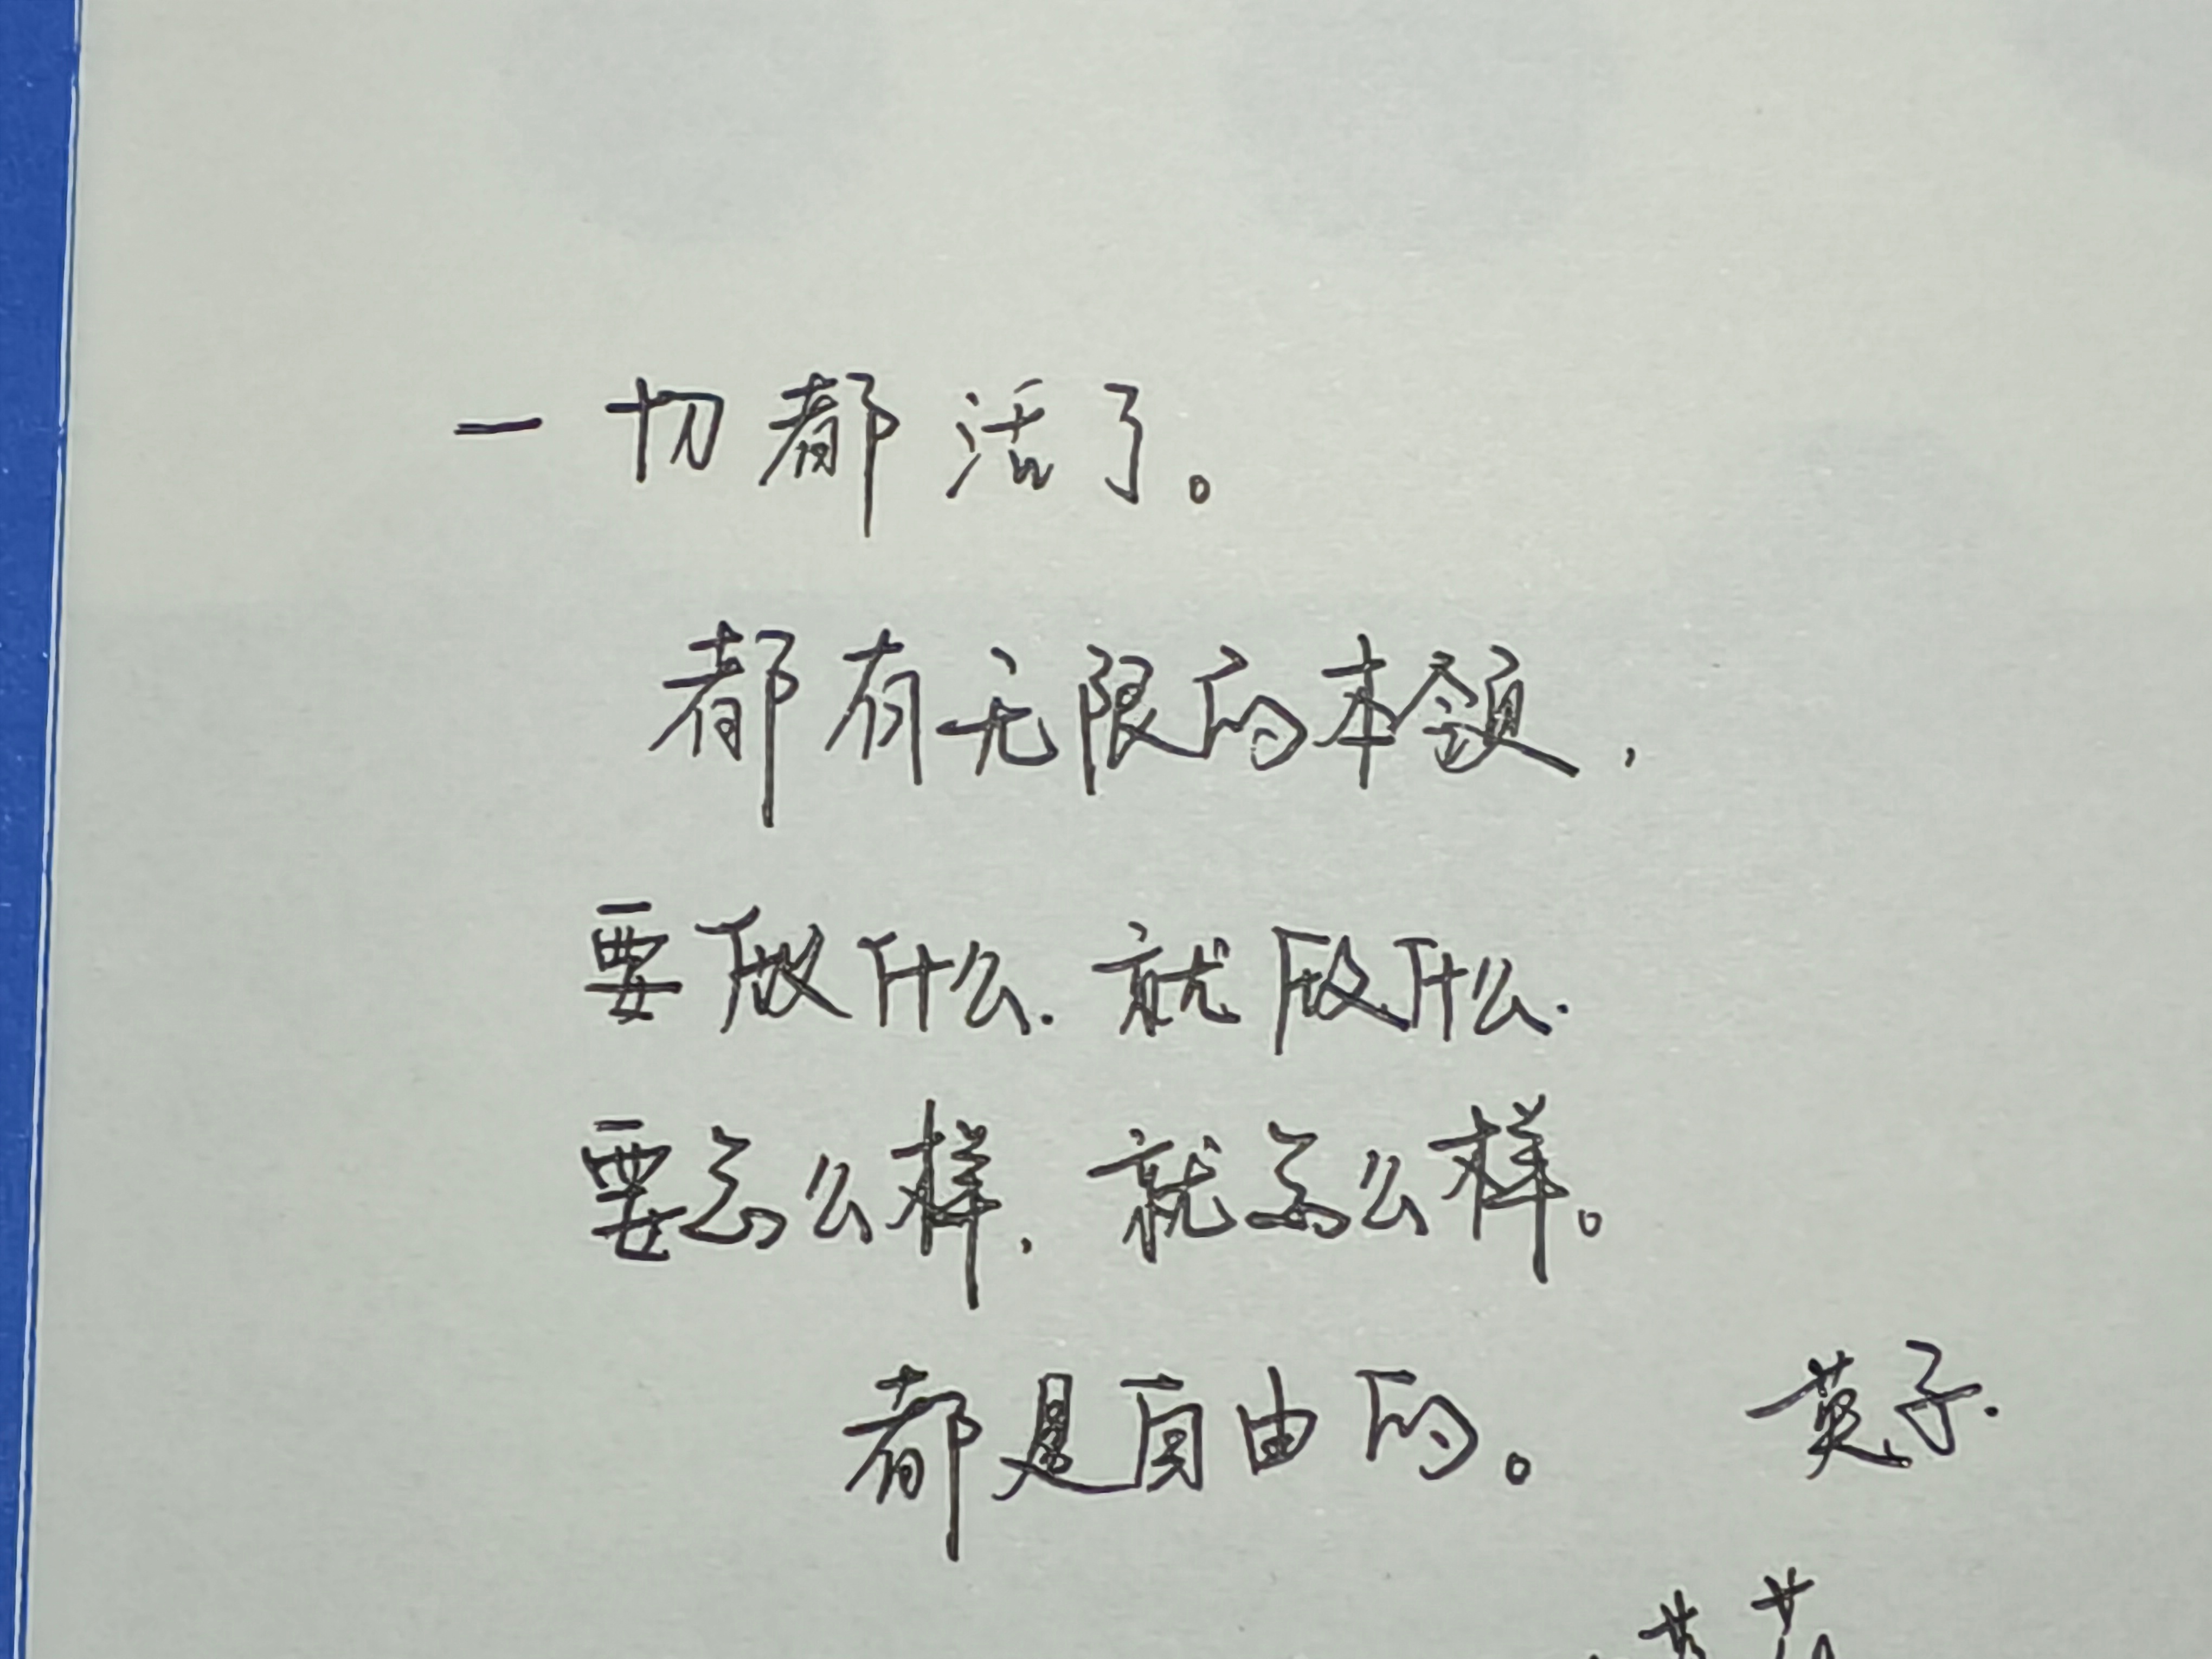 一切都活了。
都有无限的本领，
要做什么.就做什么.
要怎么样，就怎么样。
都是自由的。 英子.